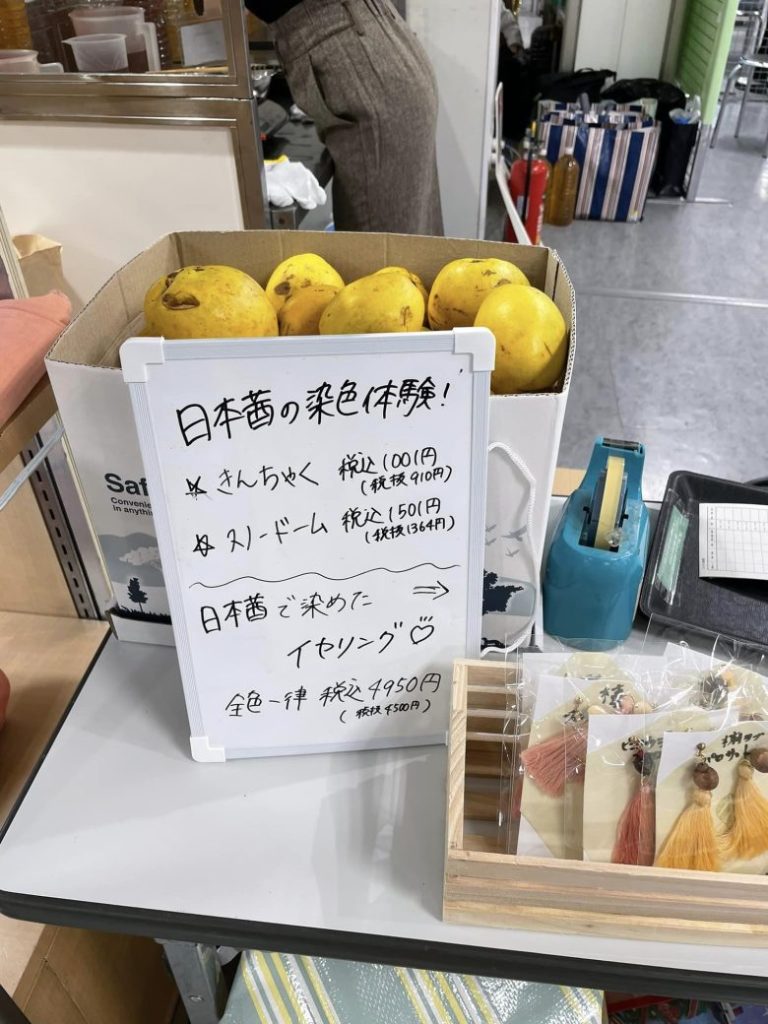 日本茜の染色体験!
きんちゃく 税込1001円
(税抜910円)
スノードーム 税込1501円
(税抜1364円)
日本茜で染めた ⇒
イヤリング♡
全色一律 税込4950円
(税抜4500円)
Saf
Convenie
in anythin